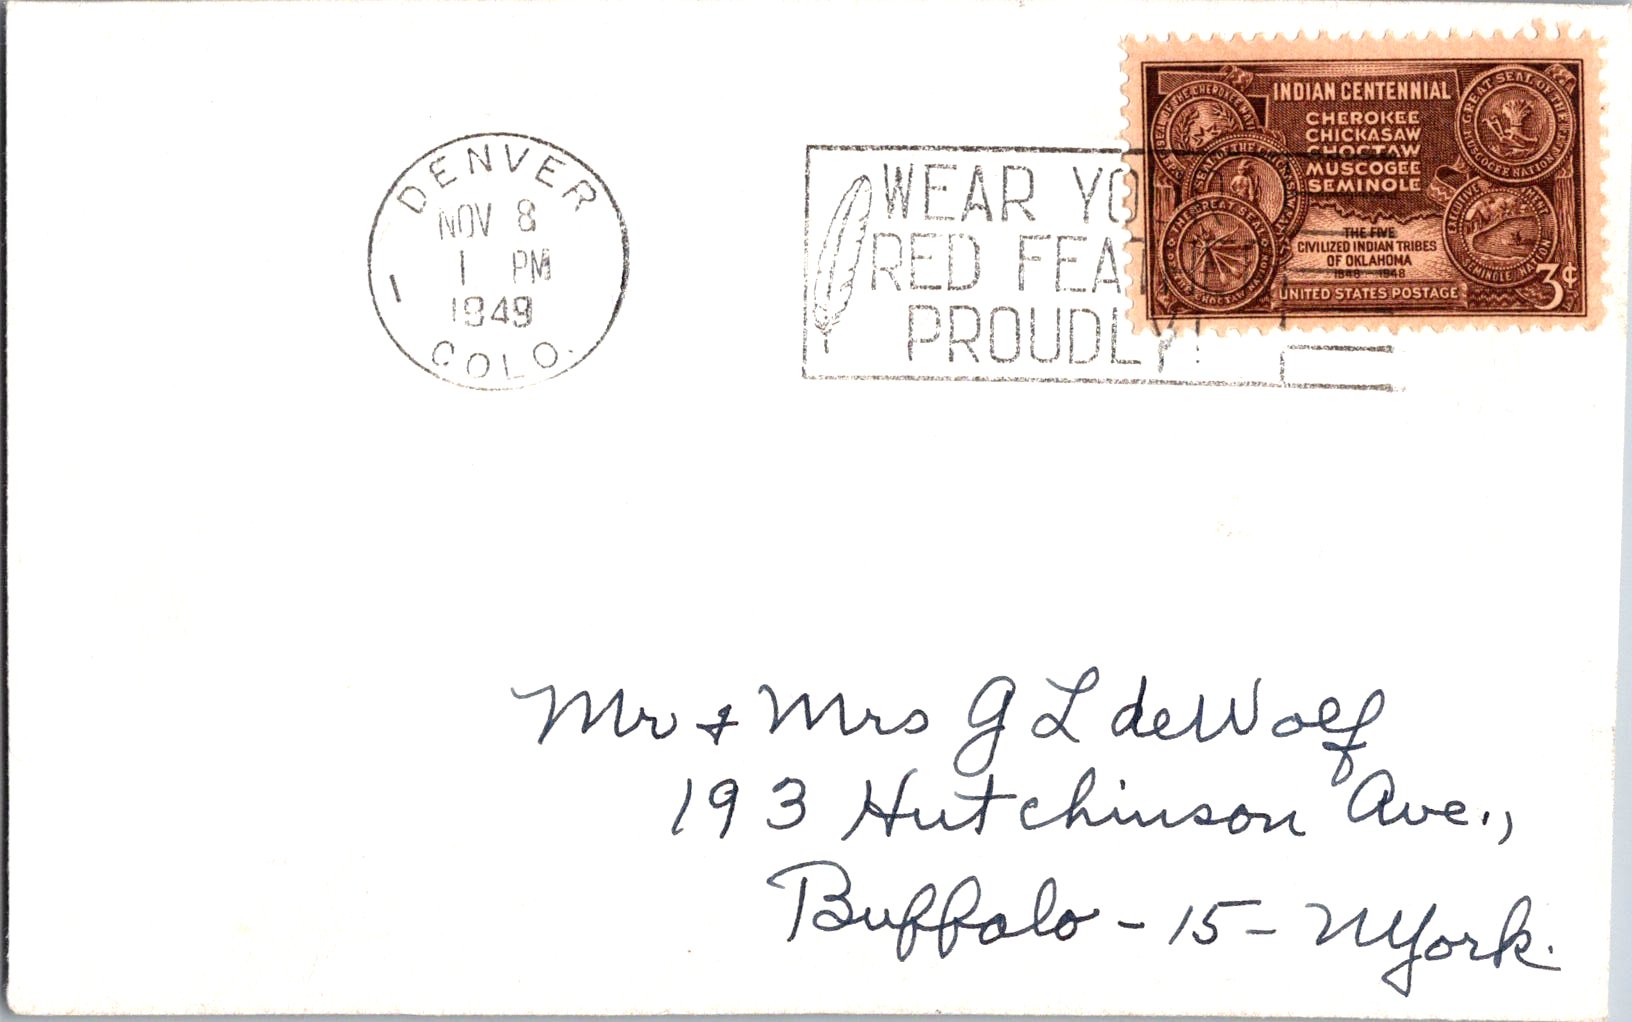 DENVER
NOV 8
1 PM
1949
1
COLO.
WEAR YO
RED FEAT
PROUDLY!
INDIAN CENTENNIAL
CHEROKEE
CHICKASAW
CHOCTAW
MUSCOGEE
SEMINOLE
THE FIVE
CIVILIZED INDIAN TRIBES
OF OKLAHOMA
1848 1948
UNITED STATES POSTAGE
3¢
Mr & Mrs G L deWolf
193 Hutchinson Ave.,
Buffalo - 15 - NYork.